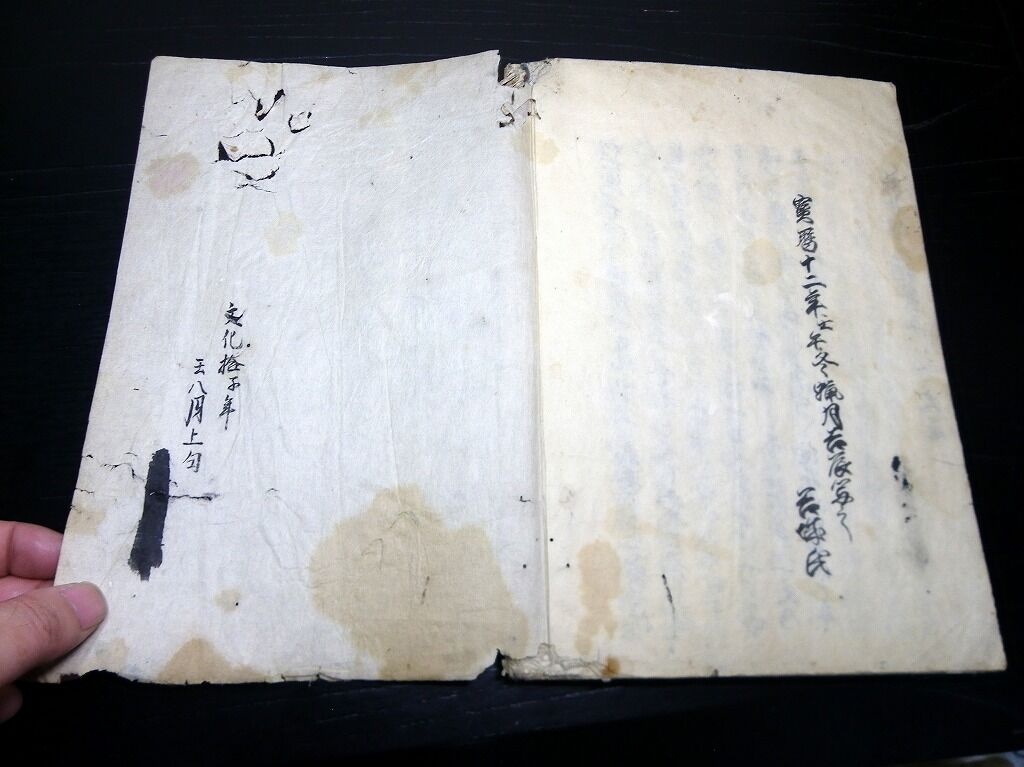 寳暦十二年壬午冬臘月吉辰写之
城氏
文化拾子年
壬八月上旬